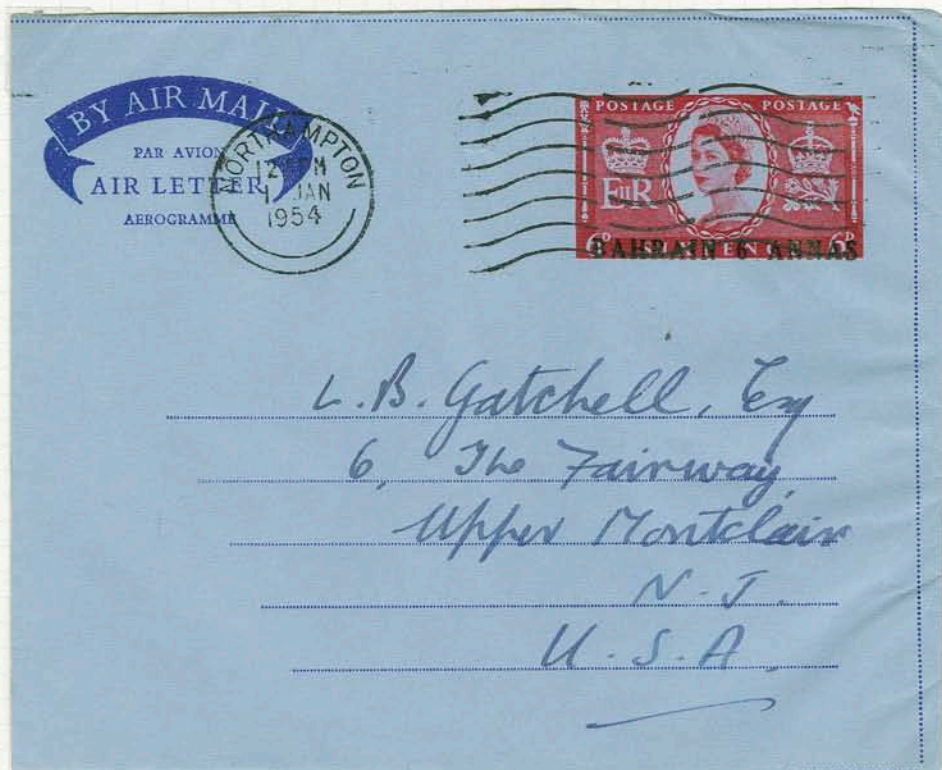 BY AIR MAIL
PAR AVION
AIR LETTER
AEROGRAMME
NORTHAMPTON
JAN
1954
POSTAGE POSTAGE
EIIR
BAHRAIN 6 ANNAS
L. B. Gatchell, Esq
6, The Fairway,
Upper Montclair
N. J.
U. S. A.